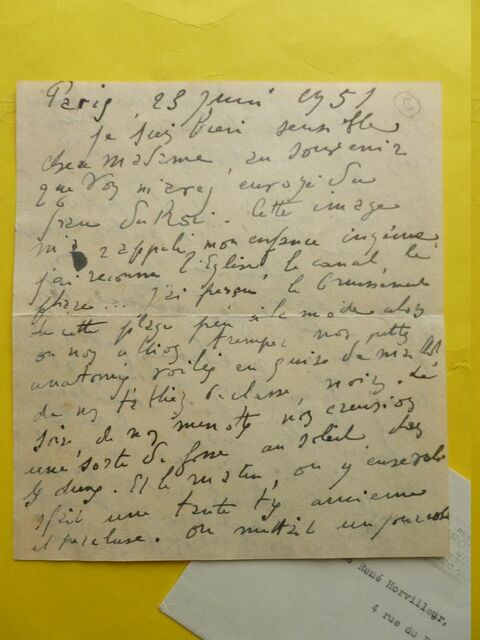 Paris, 23 Juin 1951
je suis bien sensible
chère madame, au souvenir
que vous m'avez envoyé du
grau du Roi. Cette image
m'a rappelé mon enfance ingénue
j'ai reconnu l'Eglise, le canal, le
phare... j'ai perçu le bruissement
de cette plage peu à la mode alors
où nous allions tremper nos petites
anatomies voilées en guise de maillot
de nos tabliers de classe, noirs. Le
soir, de nos menottes nous creusions
une sorte de fosse au soleil des
dunes. Et le matin, on y ensevelis
sait une tante très ancienne
et percluse. On mettait un
René Horvilleur,
4 rue du